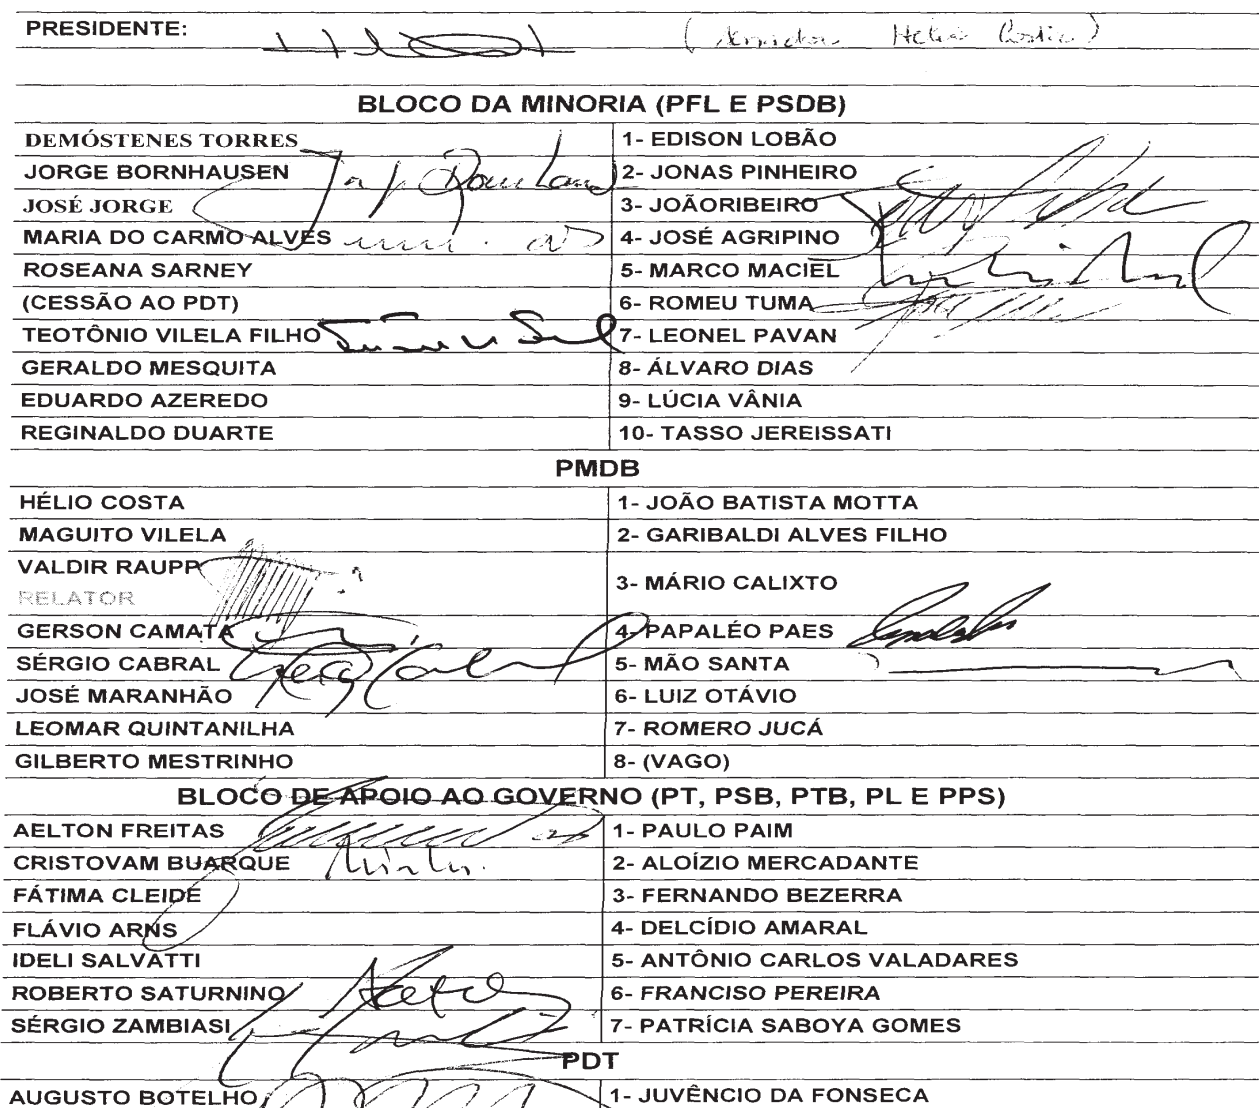 PRESIDENTE: (Senador Helio Costa)
BLOCO DA MINORIA (PFL E PSDB)
DEMÓSTENES TORRES 1- EDISON LOBÃO
JORGE BORNHAUSEN 2- JONAS PINHEIRO
JOSÉ JORGE 3- JOÃORIBEIRO
MARIA DO CARMO ALVES 4- JOSÉ AGRIPINO
ROSEANA SARNEY 5- MARCO MACIEL
(CESSÃO AO PDT) 6- ROMEU TUMA
TEOTÔNIO VILELA FILHO 7- LEONEL PAVAN
GERALDO MESQUITA 8- ÁLVARO DIAS
EDUARDO AZEREDO 9- LÚCIA VÂNIA
REGINALDO DUARTE 10- TASSO JEREISSATI
PMDB
HÉLIO COSTA 1- JOÃO BATISTA MOTTA
MAGUITO VILELA 2- GARIBALDI ALVES FILHO
VALDIR RAUPP 3- MÁRIO CALIXTO
RELATOR
GERSON CAMATA 4- PAPALÉO PAES
SÉRGIO CABRAL 5- MÃO SANTA
JOSÉ MARANHÃO 6- LUIZ OTÁVIO
LEOMAR QUINTANILHA 7- ROMERO JUCÁ
GILBERTO MESTRINHO 8- (VAGO)
BLOCO DE APOIO AO GOVERNO (PT, PSB, PTB, PL E PPS)
AELTON FREITAS 1- PAULO PAIM
CRISTOVAM BUARQUE 2- ALOÍZIO MERCADANTE
FÁTIMA CLEIDE 3- FERNANDO BEZERRA
FLÁVIO ARNS 4- DELCÍDIO AMARAL
IDELI SALVATTI 5- ANTÔNIO CARLOS VALADARES
ROBERTO SATURNINO 6- FRANCISO PEREIRA
SÉRGIO ZAMBIASI 7- PATRÍCIA SABOYA GOMES
PDT
AUGUSTO BOTELHO 1- JUVÊNCIO DA FONSECA